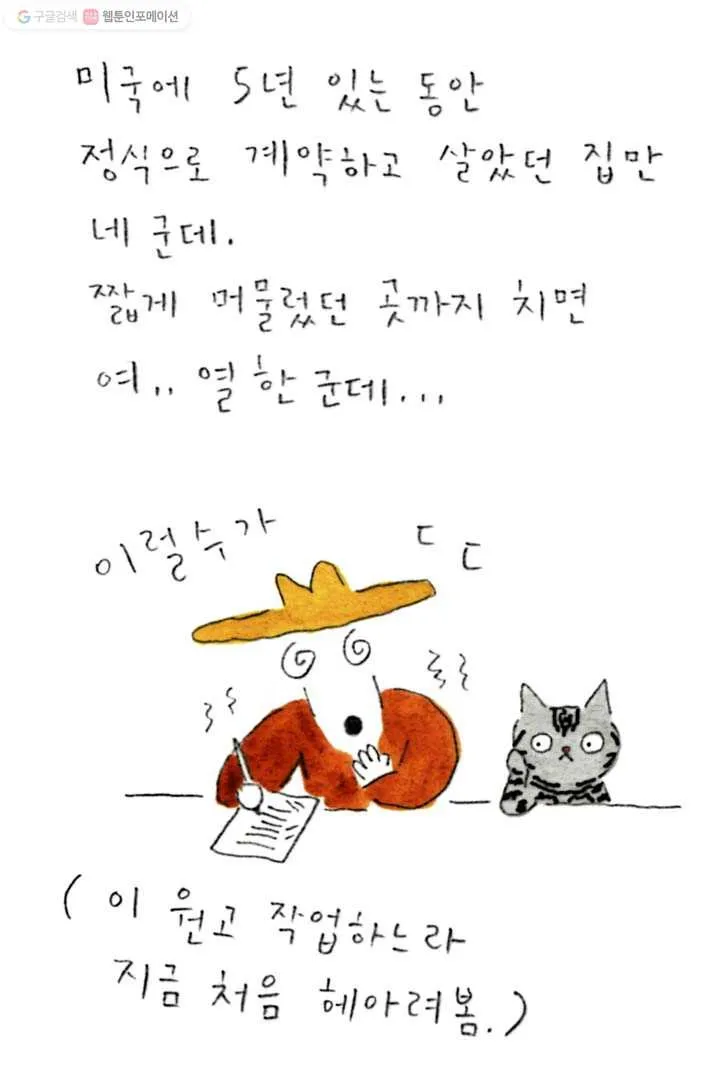 구글검색 웹툰인포메이션
미국에 5년 있는 동안
정식으로 계약하고 살았던 집만
네 군데.
짧게 머물렀던 곳까지 치면
여.. 열 한 군데...
이럴수가
ㄷㄷ
(이 원고 작업하느라
지금 처음 헤아려봄.)